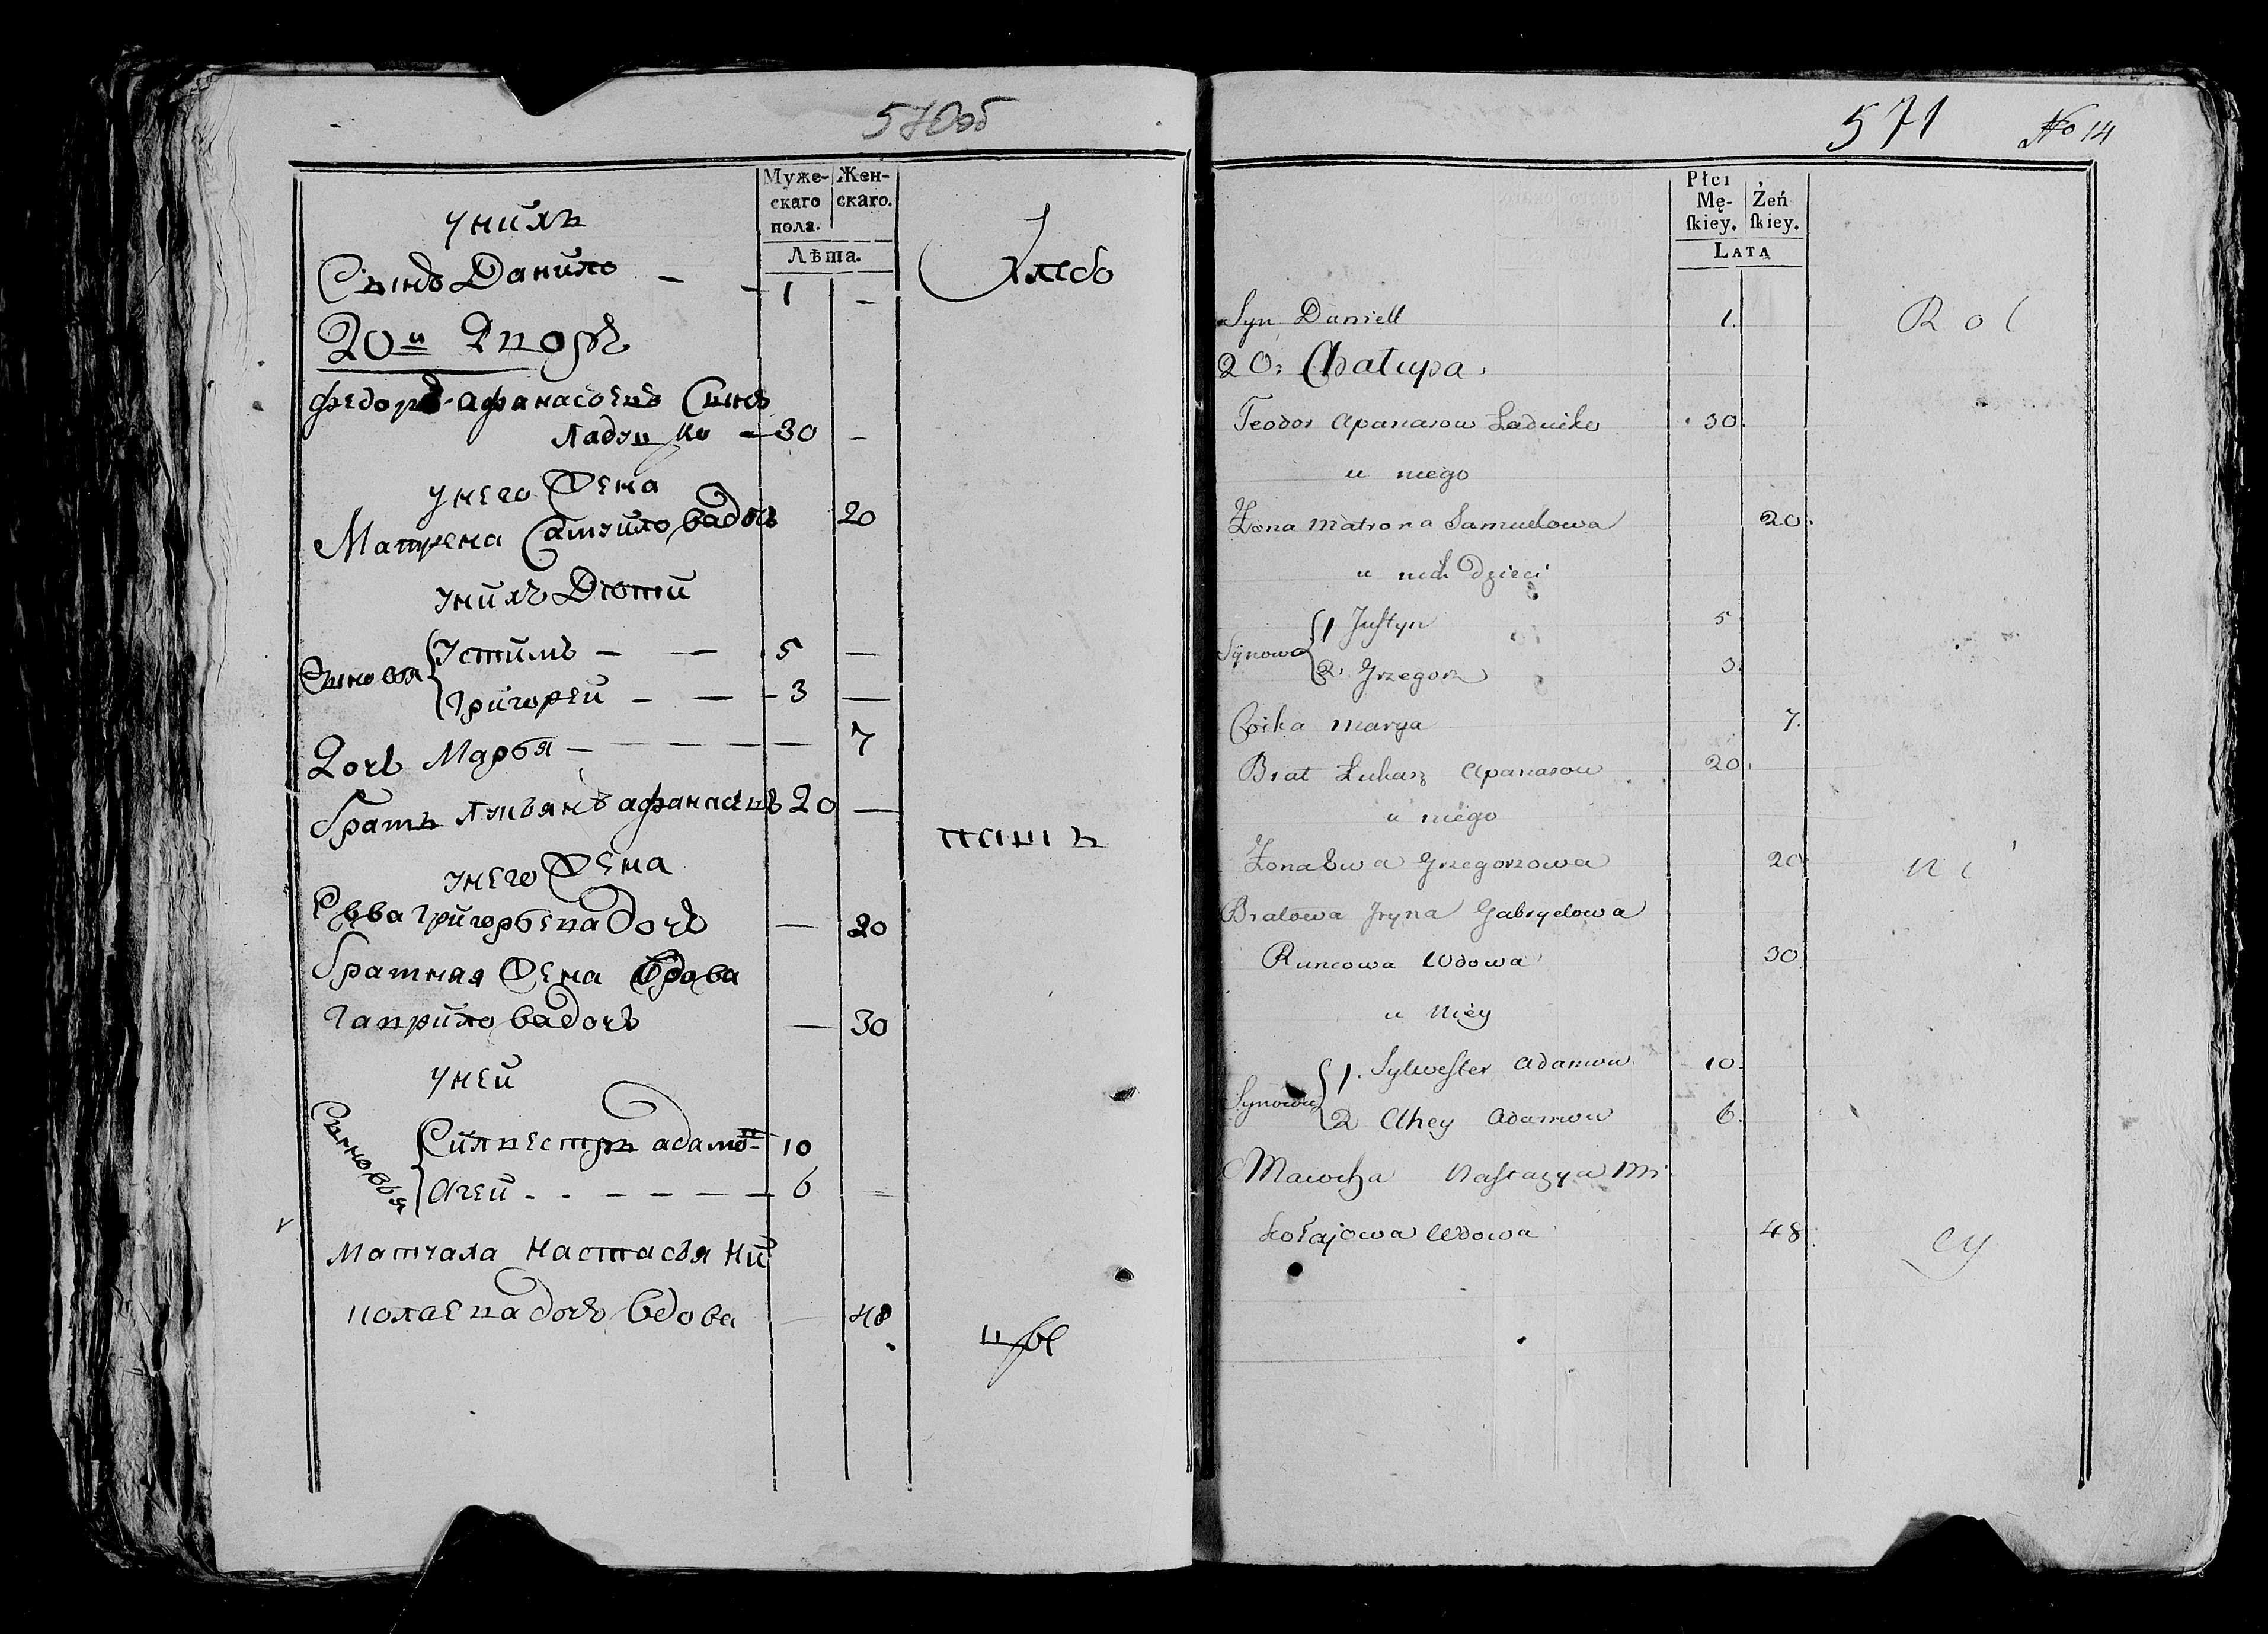 570об
Муже-
скаго
пола.
Жен-
скаго.
Лѣта.
у нихъ
Сынъ Данило — 1 —
Хлебо
20й Дворъ
Федоръ Афанасьевъ Сынъ
Ладушко — 30 —
у него Жена
Матрена Самуйлова дочь 20
у нихъ Дѣти
Сыновья
Устимъ — — 5 —
Григорей — — 3 —
Дочь Марья — — — — — 7
Братъ Лукьянъ Афанасьевъ 20 —
пашъ
у него Жена
Евва Григорьева дочь — 20
Братняя Жена Вдова
Гаврилова дочь — 30
у ней
Сыновья
Силвестръ Адамов 10
Агей — — — — — 6 =
Матчала Настасья Ни
колаева дочь Вдова — 48
цы
571
No 14
Płci
Mę-
ſkiey.
Żeń
ſkiey.
LATA
Syn Daniell 1.
Rol
20. Chałupa.
Teodor Apanasow Laduczko 30.
u niego
Żona Matrona Samuelowa 20.
u nich Dzieci
Synowie
1 Juſtyn 5
2. Grzegorz 3.
Corka Marya 7.
Brat Łukasz Apanasow 20.
u niego
Żona Ewa Grzegorzowa 20
ni
Bratowa Jryna Gabryelowa
Runcowa Wdowa 30
u Niey
Synowie
1. Sylweſter Adamow 10.
2 Ahey Adamow 6.
Macocha Naſtazya Mi
kołajowa Wdowa 48.
cy